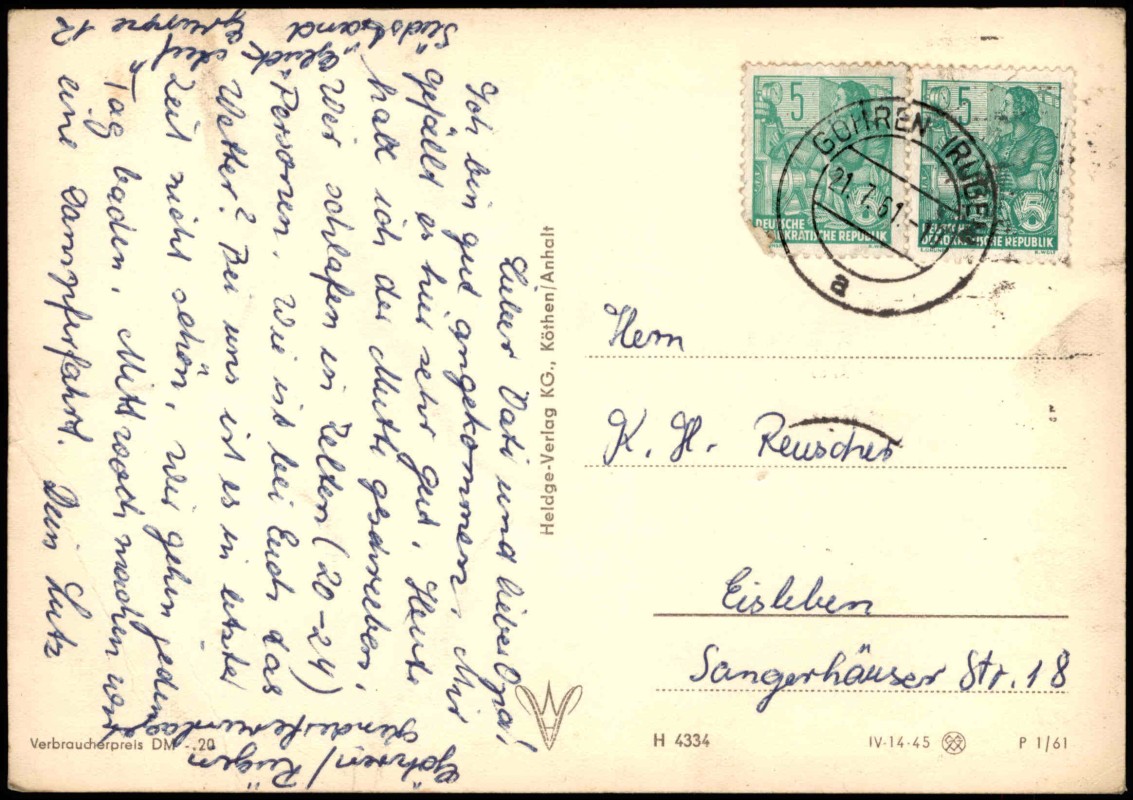 Lieber Vati und lieber Opa!
Ich bin gut angekommen. Mir
gefällt es hier sehr gut. Heute
habe ich der Mutti geschrieben.
Wir schlafen in Zelten (20-24)
Personen. Wie ist bei Euch das
Wetter? Bei uns ist es in letzter
Zeit nicht schön. Wir gehen jeden
Tag baden. Mittwoch machen wir
eine Dampferfahrt. Dein Lutz
Göhren/Rügen
Südstrand
"Glück auf"
Gruppe 12
DEUTSCHE
DEMOKRATISCHE REPUBLIK
5
5
DEUTSCHE
DEMOKRATISCHE REPUBLIK
5
5
GÖHREN (RÜGEN)
21.7.61.
a
Herrn
K. H. Reuscher
Eisleben
Sangerhäuser Str. 18
Heldge-Verlag KG., Köthen/Anhalt
Verbraucherpreis DM -.20
H 4334
IV-14-45
P 1/61